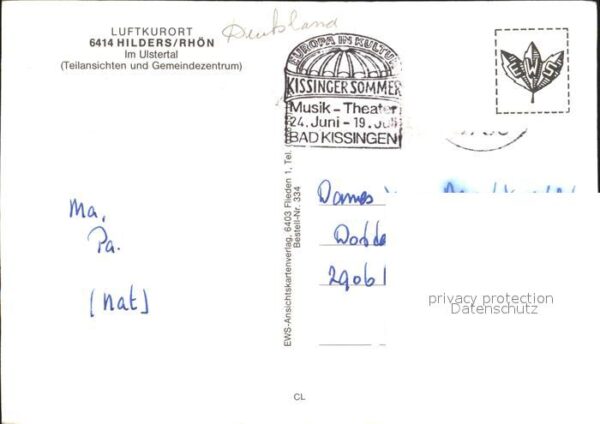 LUFTKURORT
6414 HILDERS/RHÖN
Im Ulstertal
(Teilansichten und Gemeindezentrum)
Deutsland
EUROPA IN KULTUR
KISSINGER SOMMER
Musik - Theater
24. Juni - 19. Juli
BAD KISSINGEN
EWS
Ma,
Pa.
(nat)
EWS-Ansichtskartenverlag, 6403 Flieden 1, Tel.
Bestell-Nr. 334
Dames
29061
privacy protection
Datenschutz
CL